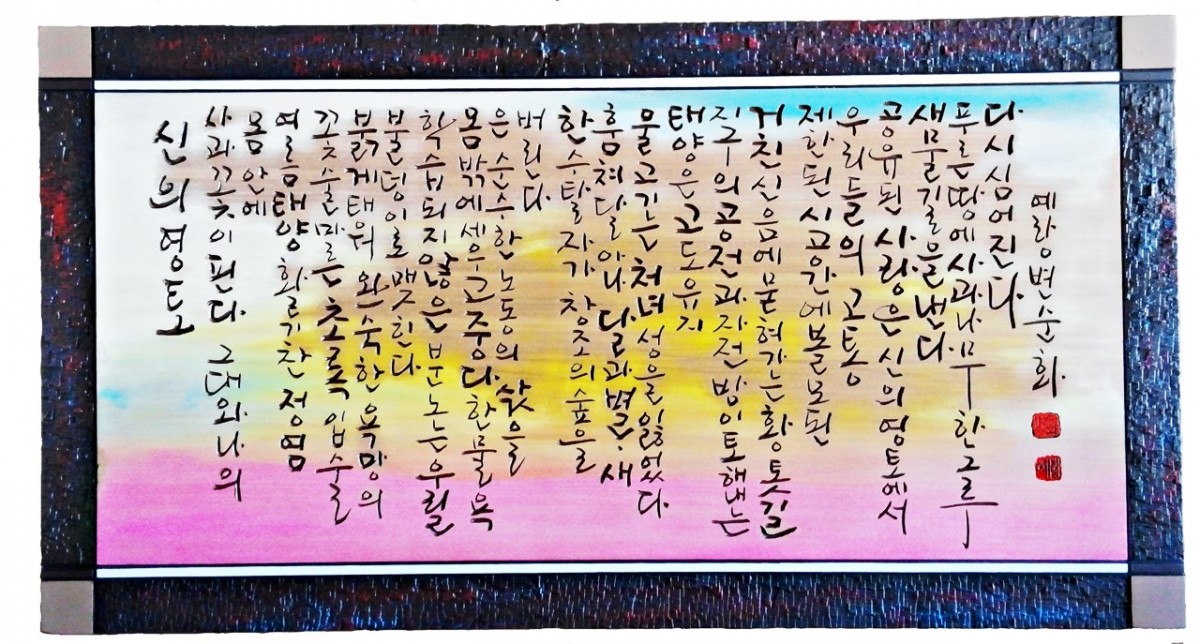 신의 영토
사과꽃이 핀다 그대와 나의
몸 안에
여름 태양 화르기찬 정염
꽃술 마른 초록 입술
붉게 태워 완숙한 욕망의
불덩이로 맺힌다
학습되지 않은 분노는 우릴
몸 밖에 세우고 중다한 물욕
은 순수한 노동의 삯을
버린다
한 수탈자가 창조의 숲을
훔쳐 달아나 달과 별, 새
물고기는 처녀성을 잃었다
태양은 고도유지
지구의 공전과 자전 밤이 토해내는
거친 신음에 묻혀가는 황톳길
제한된 시공간에 볼모된
우리들의 고통
공유된 사랑은 신의 영토에서
새 물길을 낸다
푸른 땅에 사과나무 한그루
다시 심어진다
예랑 변순화